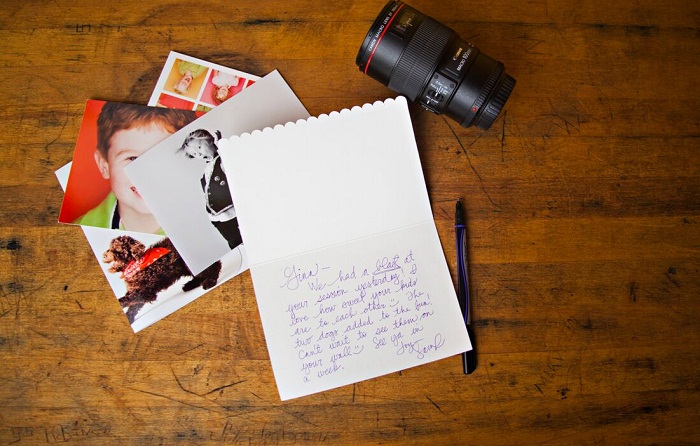 Gina -
We had a blast at
your session yesterday! I
love how sweet your kids
are to each other :) The
two dogs added to the fun!
Can't wait to see them on
your wall :) See ya in
a week.
Joy,
Sarah
Canon